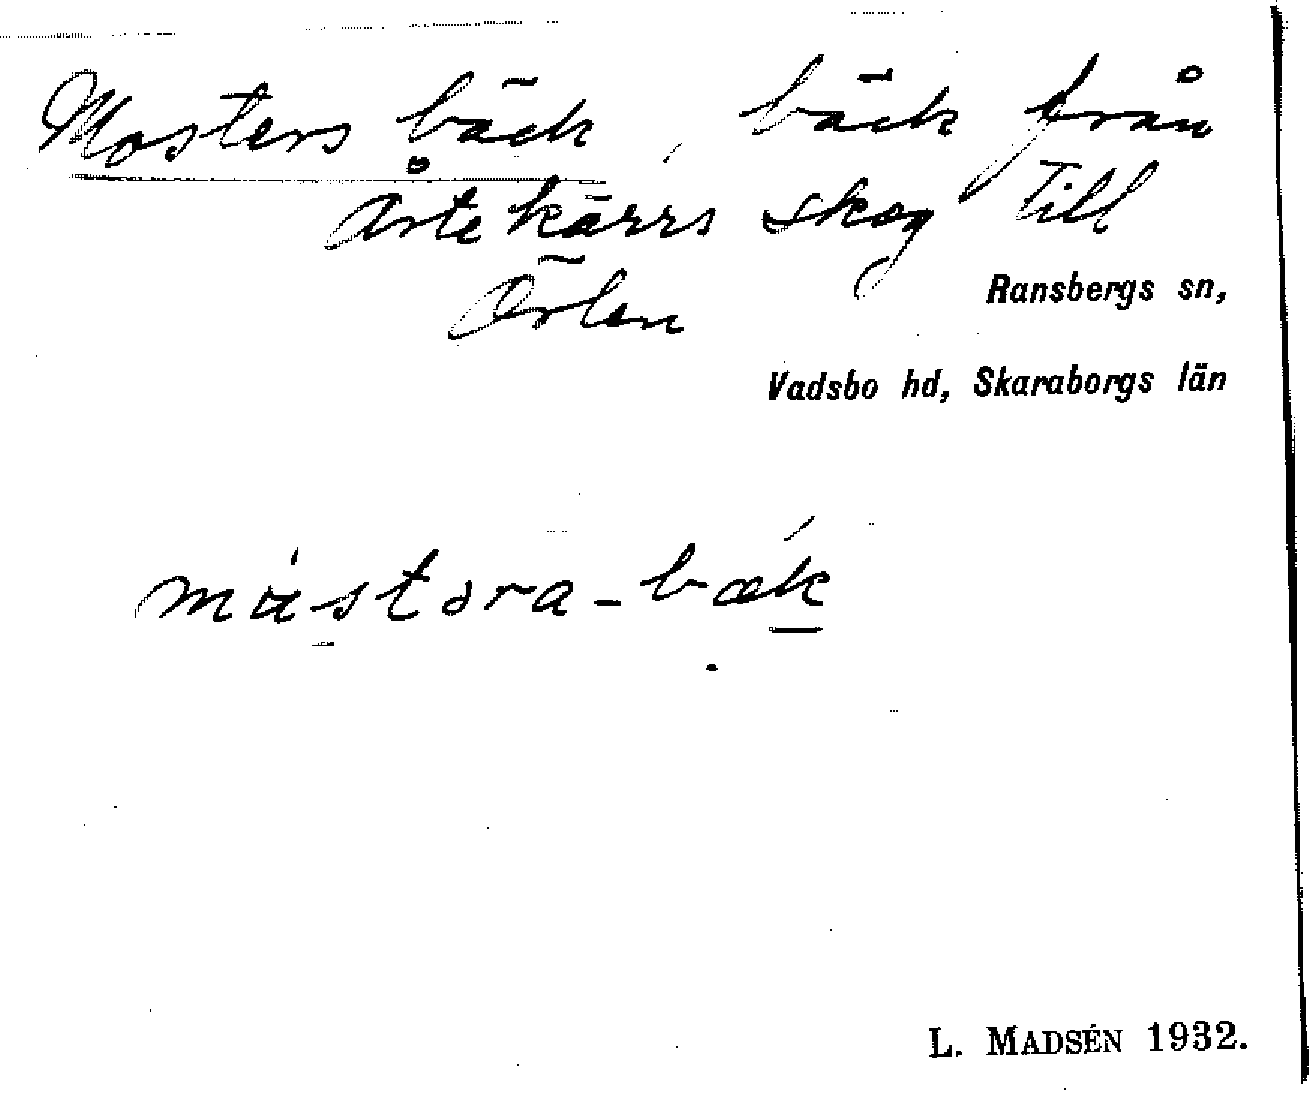 Mosters bäck, bäck från
Årtekärrs skog till
Örlen
Ransbergs sn,
Vadsbo hd, Skaraborgs län
mústəra-bæ̀k
L. MADSÉN 1932.